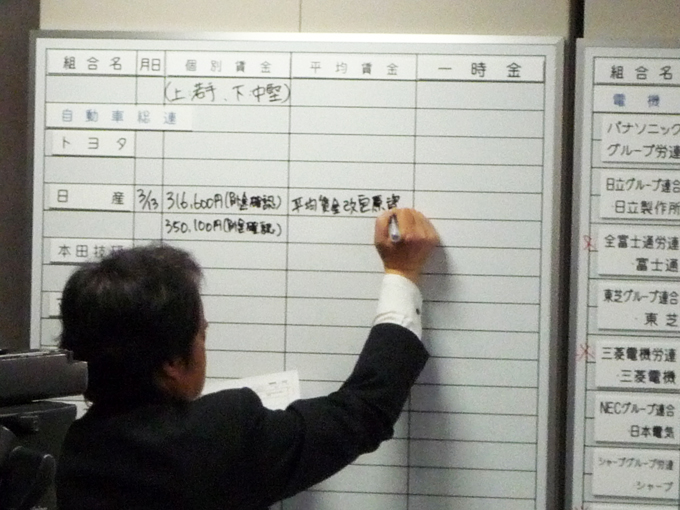 組合名 月日 個別賃金 平均賃金 一時金
(上:若手、下:中堅)
自動車総連
トヨタ
日産 3/13 316,600円(賃金確認) 平均賃金改定原資
350,100円(賃金確認)
本田技研
組合名
電機
パナソニック
グループ労連
日立グループ連合
・日立製作所
全富士通労連
・富士通
東芝グループ連合
・東芝
三菱電機労連
・三菱電機
NECグループ連合
・日本電気
シャープグループ労連
・シャープ